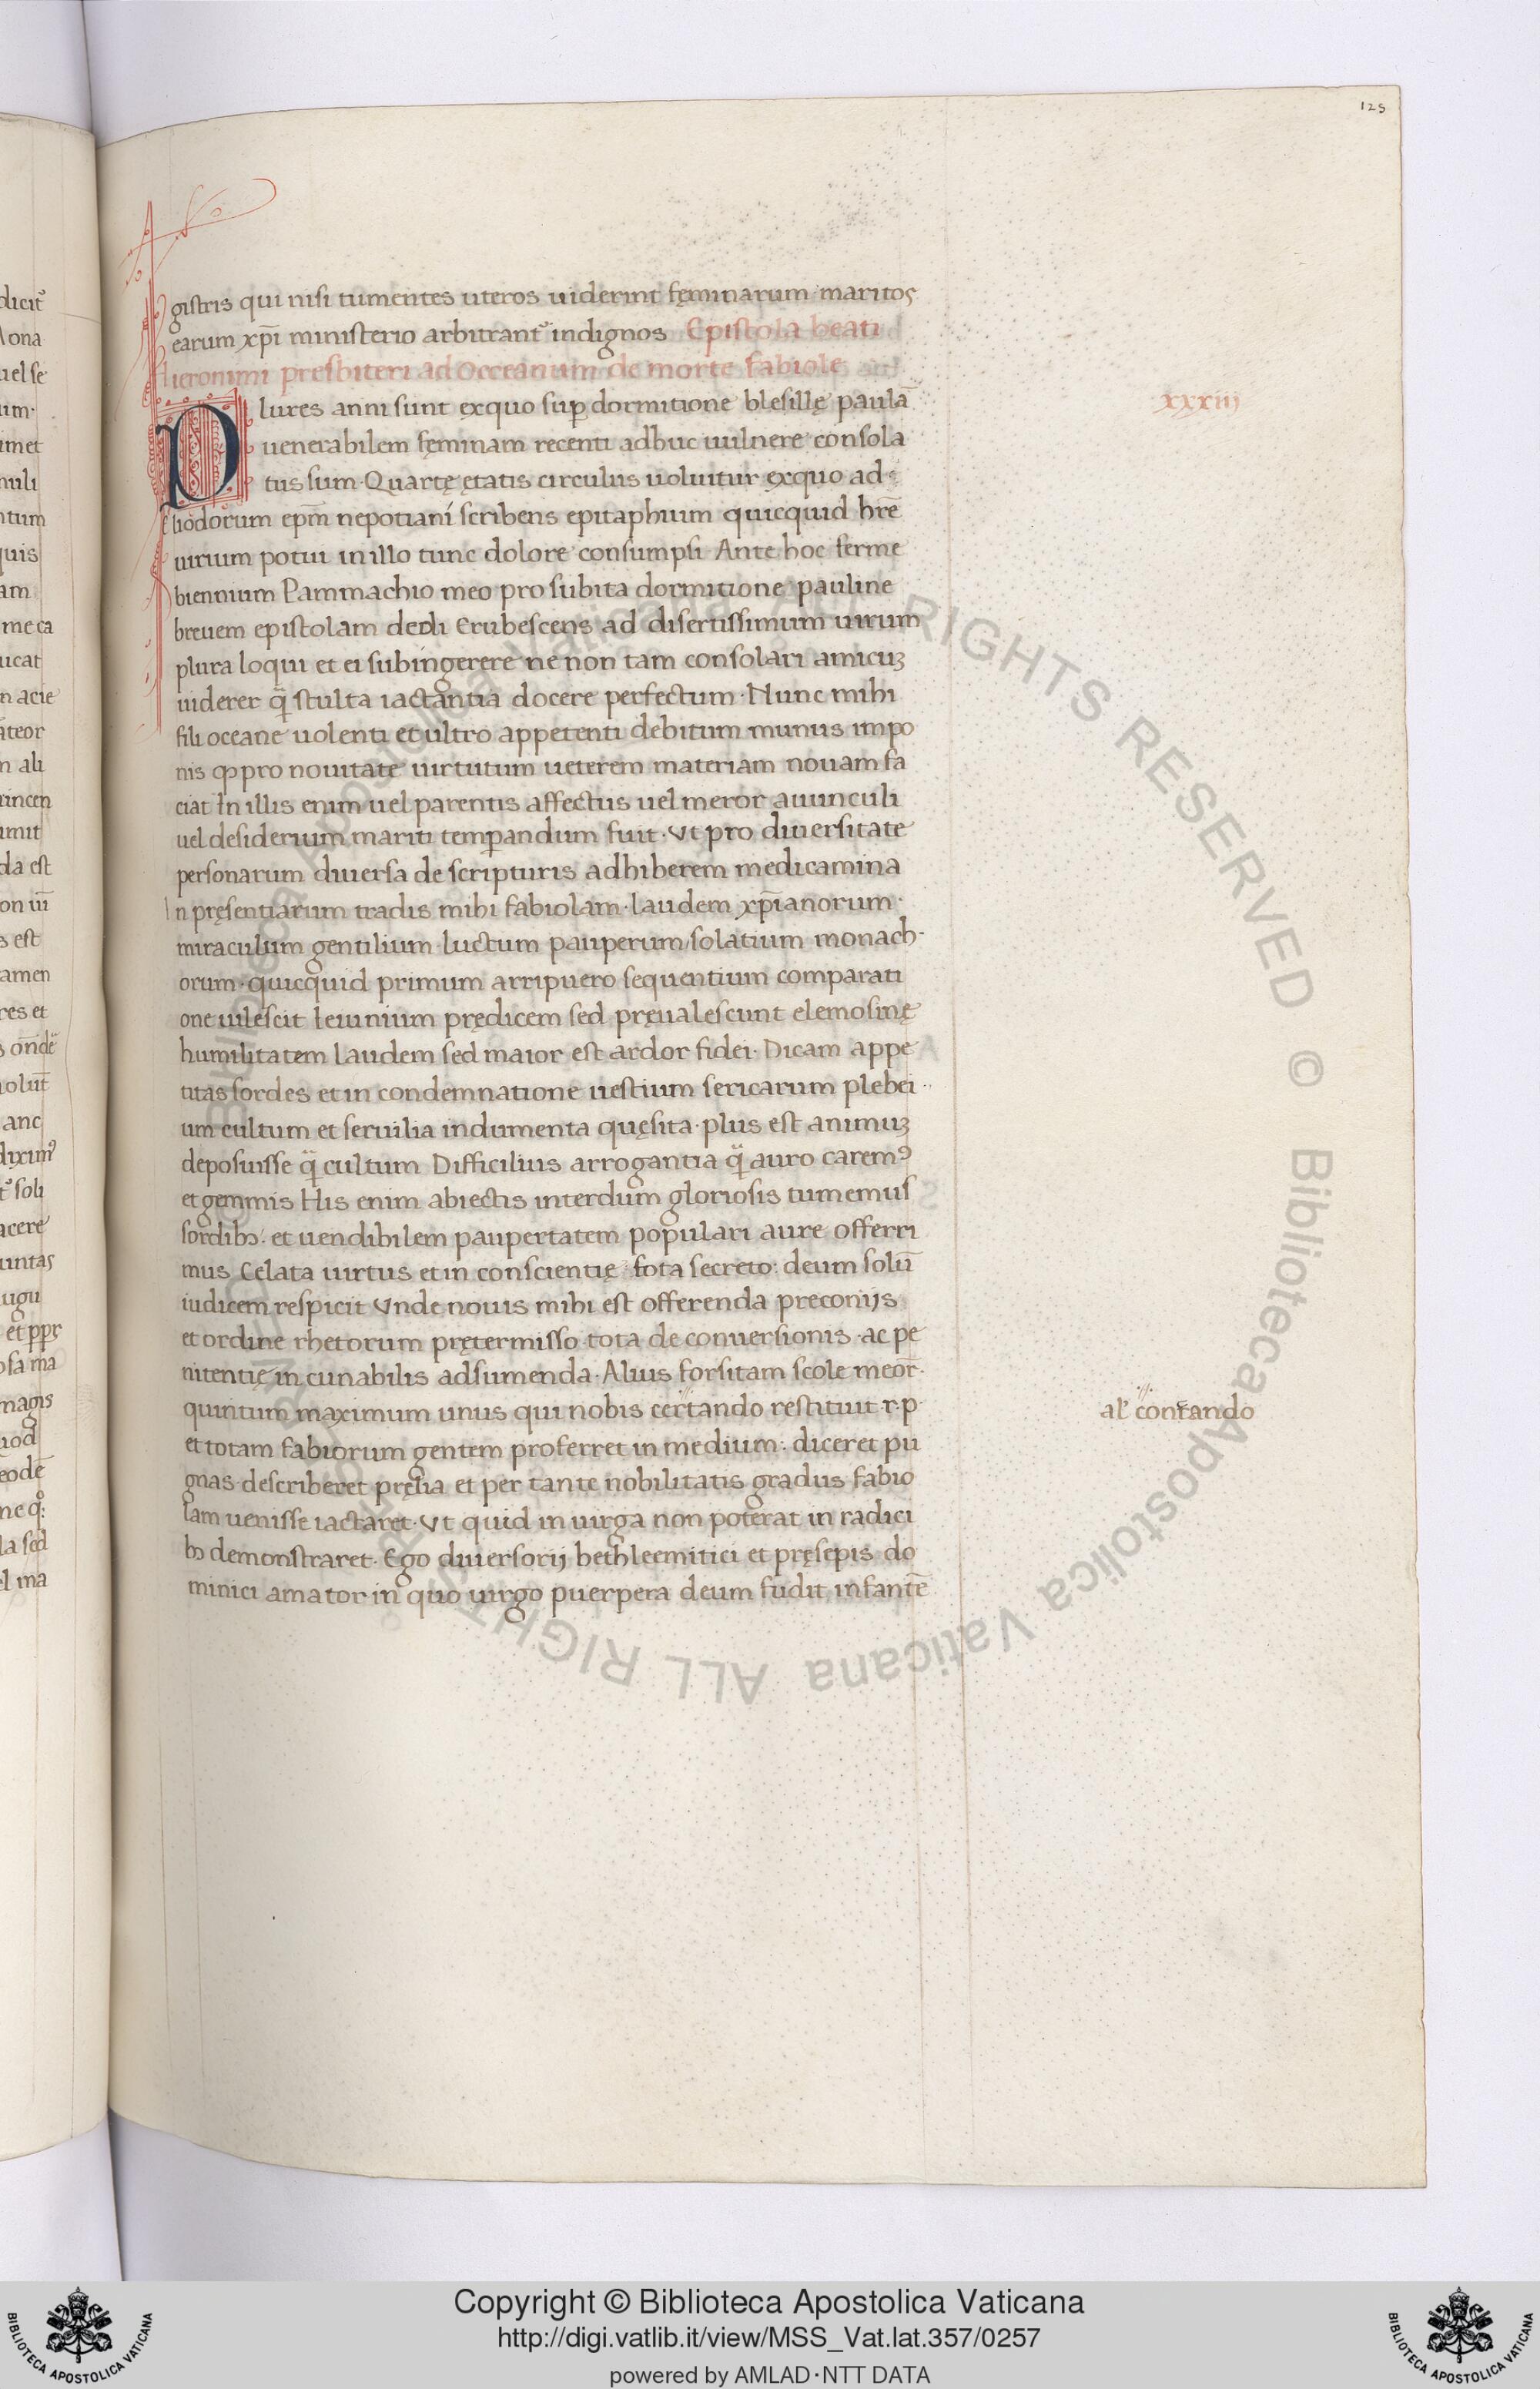 125
gistris qui nisi tumentes uteros uiderint fęminarum maritos
earum xp̄i ministerio arbitrant᷒ indignos Epistola beati
Hieronimi presbiteri ad Occeanum de morte fabiole
xxxiij
Plures anni sunt exquo suꝑ dormitione blesillę paulā
uenerabilem fęminam recenti adhuc uulnere consola
tus sum· Quartę ętatis circulus uoluitur exquo ad
eliodorum ep̄m nepotiani scribens epitaphium quicquid hr̄e
uirium potui in illo tunc dolore consumpsi Ante hoc ferme
biennium Pammachio meo pro subita dormitione pauline
breuem epistolam dedi Erubescens ad disertissimum uirum
plura loqui et ei subingerere ne non tam consolari amicuꝫ
uiderer q̃ stulta iactantia docere perfectum· Nunc mihi
fili oceane uolenti et ultro appetenti debitum munus impo
nis ꝙ pro nouitate uirtutum ueterem materiam nouam fa
ciat In illis enim uel parentis affectus uel meror auunculi
uel desiderium mariti temꝑandum fuit· Vt pro diuersitate
personarum diuersa de scripturis adhiberem medicamina
In pręsentiarum tradis mihi fabiolam· laudem xp̄ianorum·
miraculum gentilium· luctum pauperum/ solatium monach-
orum· quicquid primum arripuero sequentium comparati
one uilescit Ieiunium prędicem sed pręualescunt elemosinę
humilitatem laudem sed maior est ardor fidei· Dicam appe
titas sordes et in condemnatione uestium sericarum plebei
um cultum et seruilia indumenta quęsita· plus est animuꝫ
deposuisse q̃ cultum Difficilius arrogantia q̃ auro caremꝰ
et gemmis His enim abiectis interdum gloriosis tumemus
sordibꝫ: et uendibilem paupertatem populari aure offerri
mus Celata uirtus et in conscientię fota secreto: deum solū
iudicem respicit Vnde nouis mihi est offerenda preconijs
et ordine rhetorum prętermisso tota de conuersionis· ac pe
nitentię in cunabilis adsumenda· Alius forsitam scole meor̄·
quintum maximum unus qui nobis certando restituit r·p·
al᷒ contando
et totam fabiorum gentem proferret in medium: diceret pu
gnas· describeret pręlia et per tante nobilitatis gradus fabio
lam uenisse iactaret· Vt quid in uirga non poterat in radici
bꝫ demonstraret· Ego diuersorij bethleemitici et pręsepis do
minici amator in quo uirgo puerpera deum fudit infantē
dicit᷒
ona
uel se
um·
imet
nuli
ntum
quis
am
me ca
ucat
n acie
ateor
n ali
uincen
imit
da est
s est
amen
res et
anc
soli
acere
untas
ugu
osa ma
magis
la sed
el ma
Biblioteca Apostolica Vaticana ALL RIGHTS RESERVED ©
Copyright © Biblioteca Apostolica Vaticana
http://digi.vatlib.it/view/MSS_Vat.lat.357/0257
powered by AMLAD·NTT DATA
BIBLIOTECA APOSTOLICA VATICANA
BIBLIOTECA APOSTOLICA VATICANA